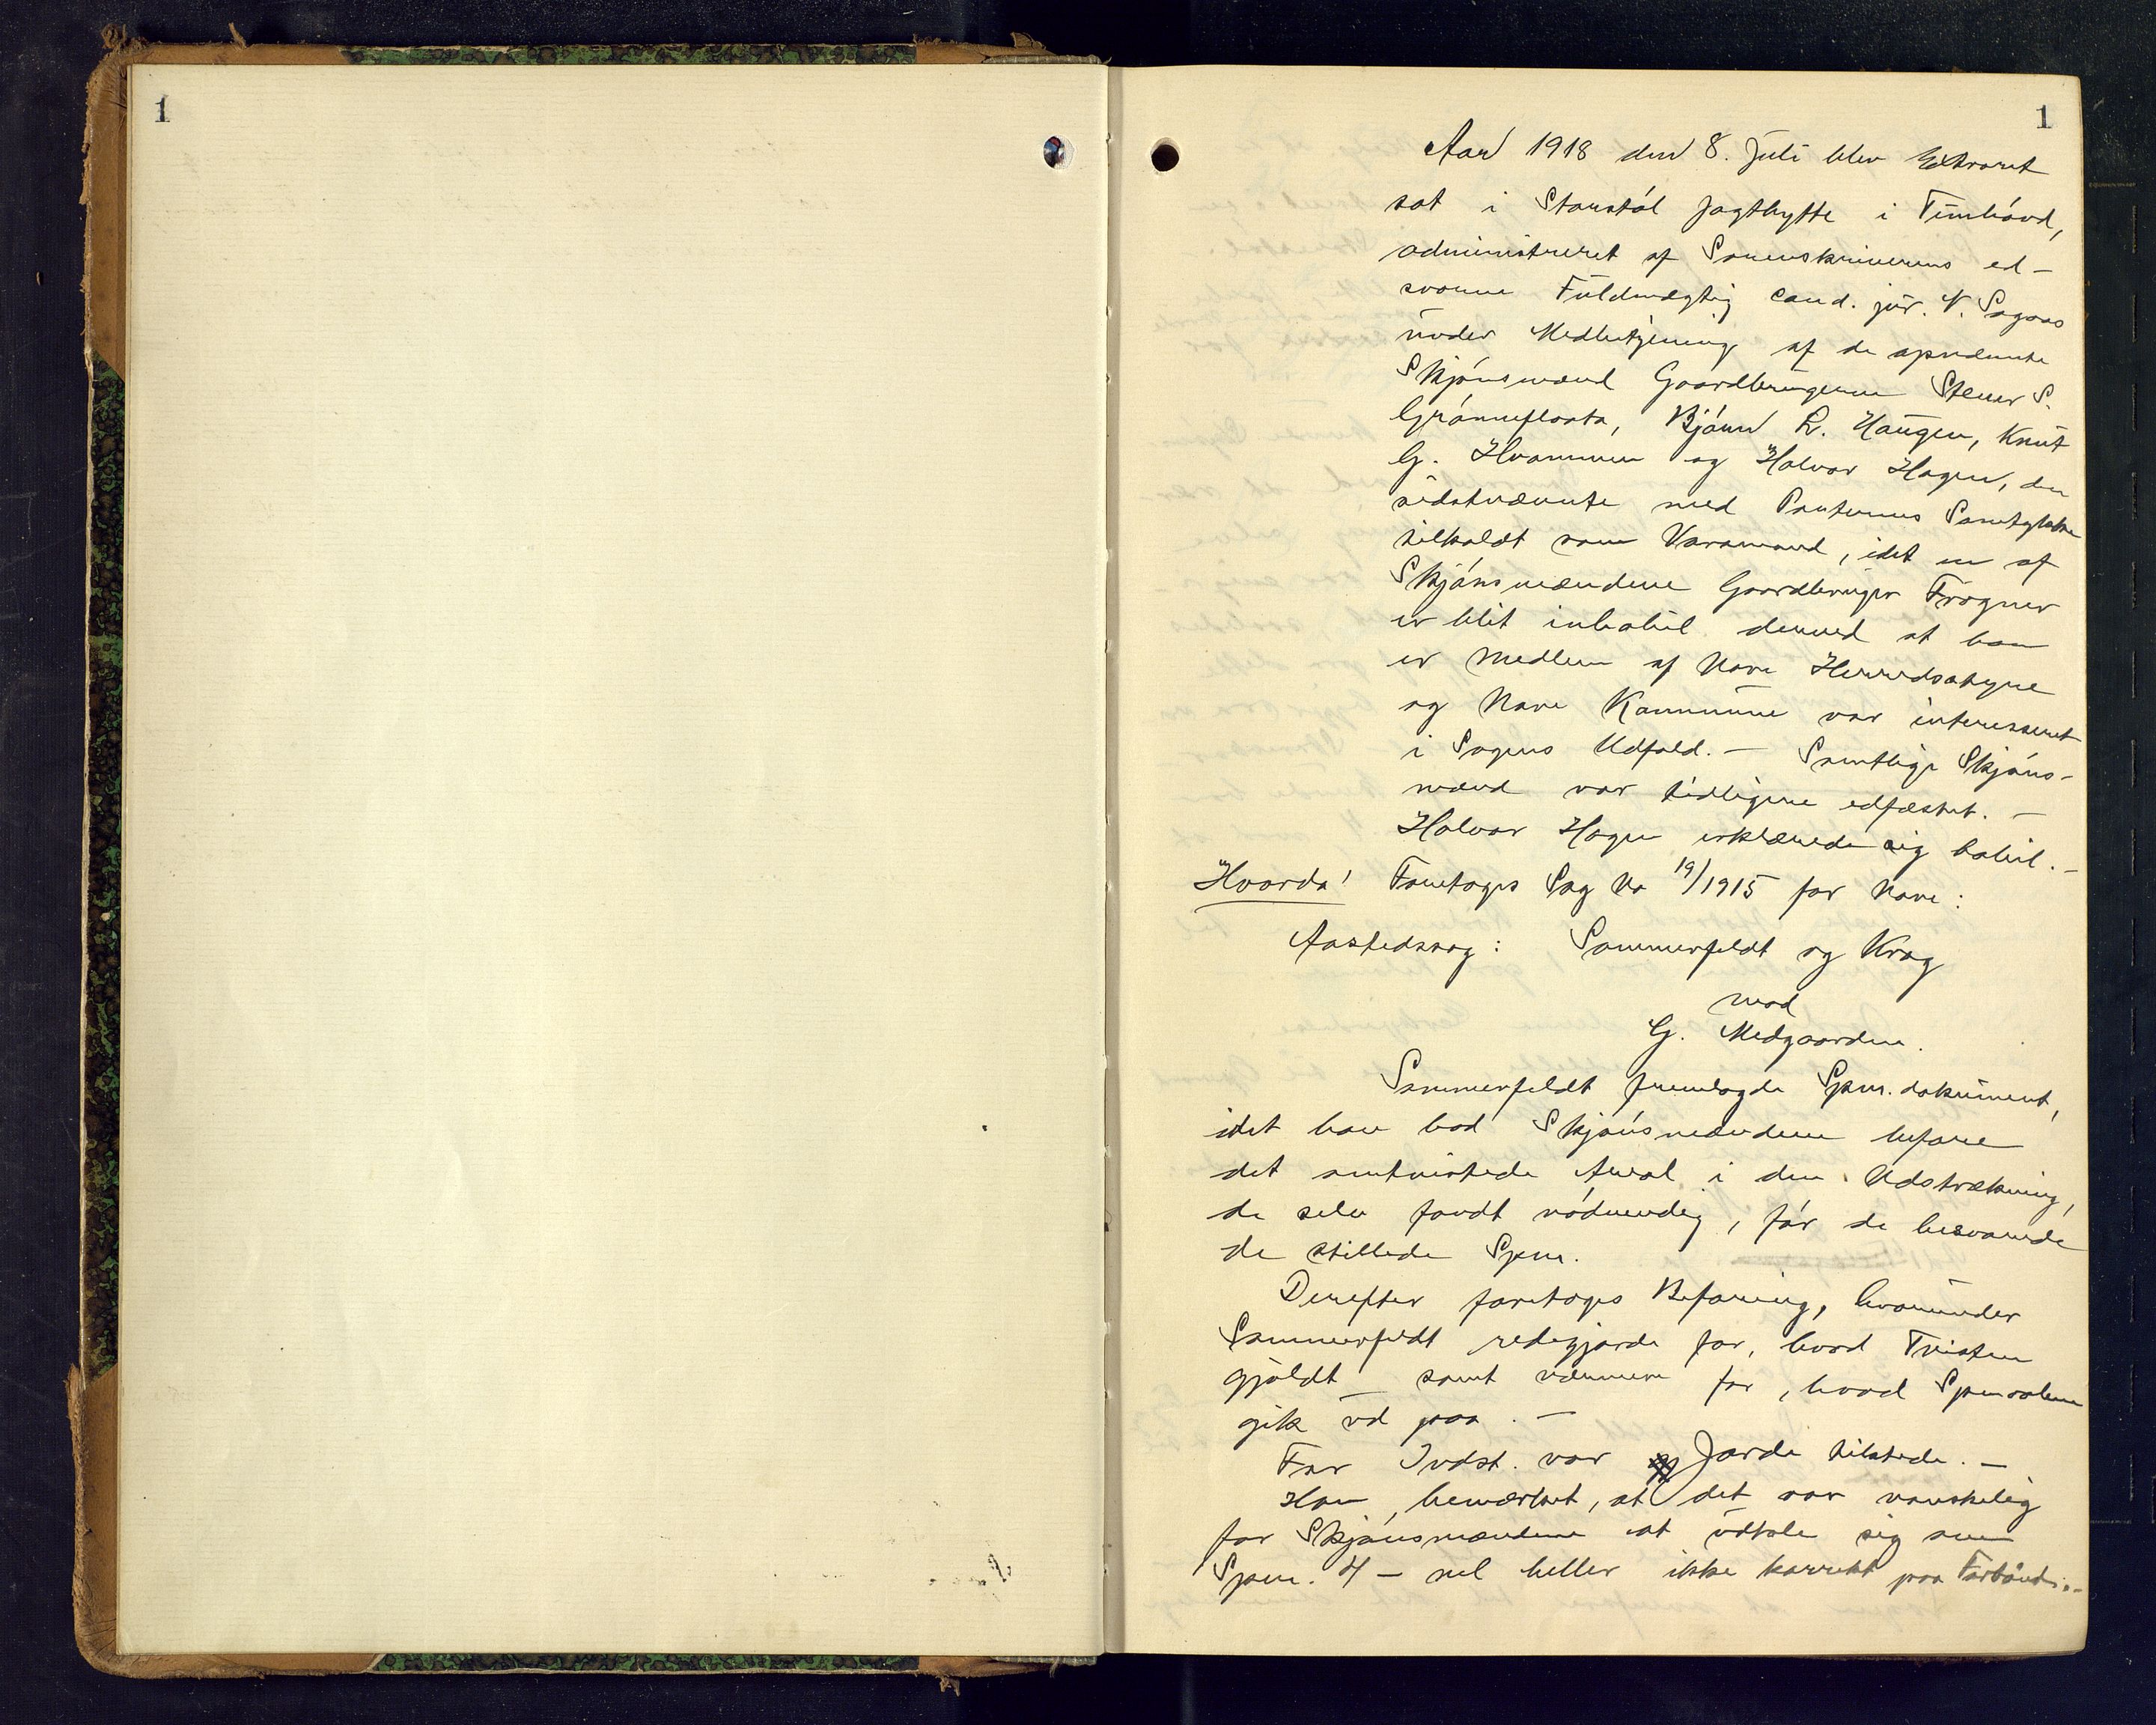 1
1
Aar 1918 den 8. Juli blev Extraret
sat i Storstøl Jagthytte i Timhövd,
administreret af Sorenskriverens ed-
svorne Fuldmægtig cand. jur. N. Sogaas
under Medbetjening af de opnævnte
Skjönsmænd Gaardbrugerne Steur S.
Grönneflaata, Björn L. Haugen, Knut
G. Hvammen og Halvor Hagen, den
sidstnævnte med Parternes Samtykke
tilkaldt som Varamand, idet en af
Skjönsmændene Gaardbruger Frogner
er blit inhabil derved at han
er medlem af Nore Herredsstyre
og Nore Kommune var interesseret
i Sagens Udfald. — Samtlige Skjöns-
mænd var tidligere edfæstet. —
Halvor Hagen erklærede sig habil. —
Hvorda! Foretoges Sag No 19/1915 for Nore:
Aastedssag: Sommerfeldt og Krag
mod
G. Medgaarden.
Sommerfeldt fremlagde Spm. dokument,
idet han bad Skjönsmændene befare
det omtvistede Areal i den Udstrækning,
de selv fandt nödvendig, för de besvarede
de stillede Spm.
Derefter foretoges Befaring, hvorunder
Sommerfeldt redegjorde for, hvad Tvisten
gjaldt — samt nærmere for, hvad Spmaalene
gik ud paa. —
For Indst. var Jorde tilstede. —
Han bemærket, at det var vanskelig
for Skjönsmændene at udtale sig om
Spm. 4 — vel heller ikke korrekt paa